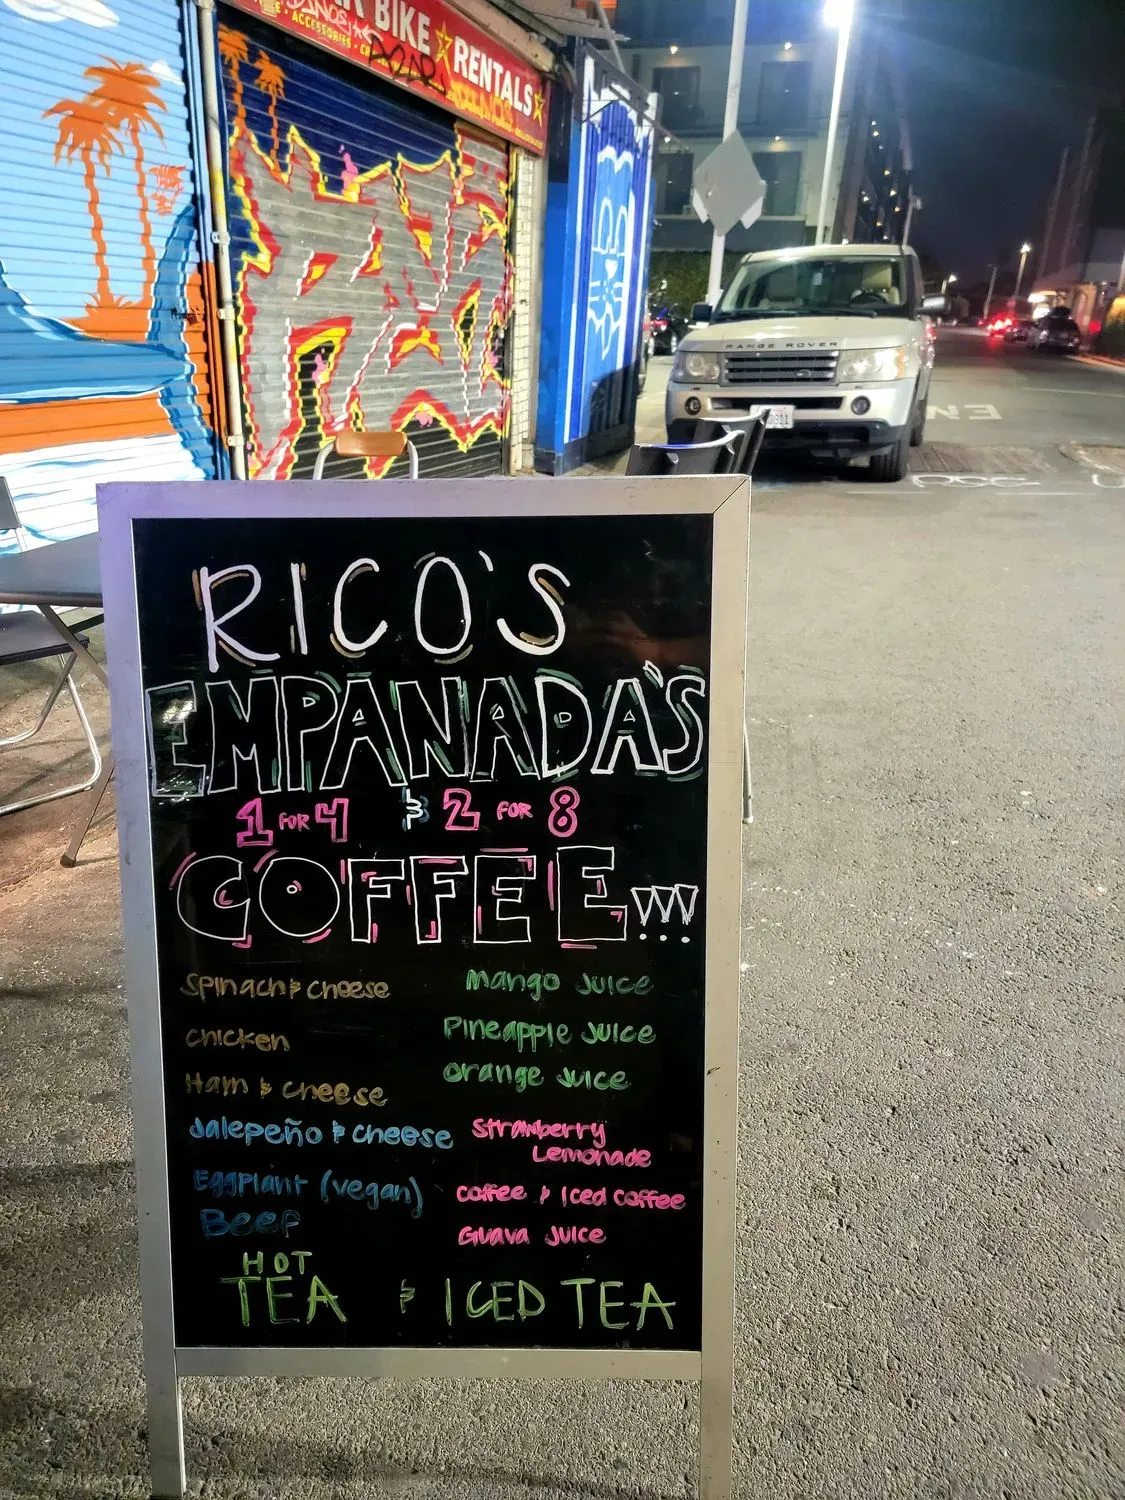 BIKE ★ RENTALS
ACCESSORIES
RANGE ROVER
RICO'S
EMPANADA'S
1 FOR 4 & 2 FOR 8
COFFEE...
Spinach & cheese
chicken
Ham & cheese
Jalepeño & cheese
Eggplant (vegan)
Beef
Mango Juice
Pineapple Juice
orange Juice
Strawberry
Lemonade
coffee & Iced coffee
Guava Juice
HOT
TEA & ICED TEA